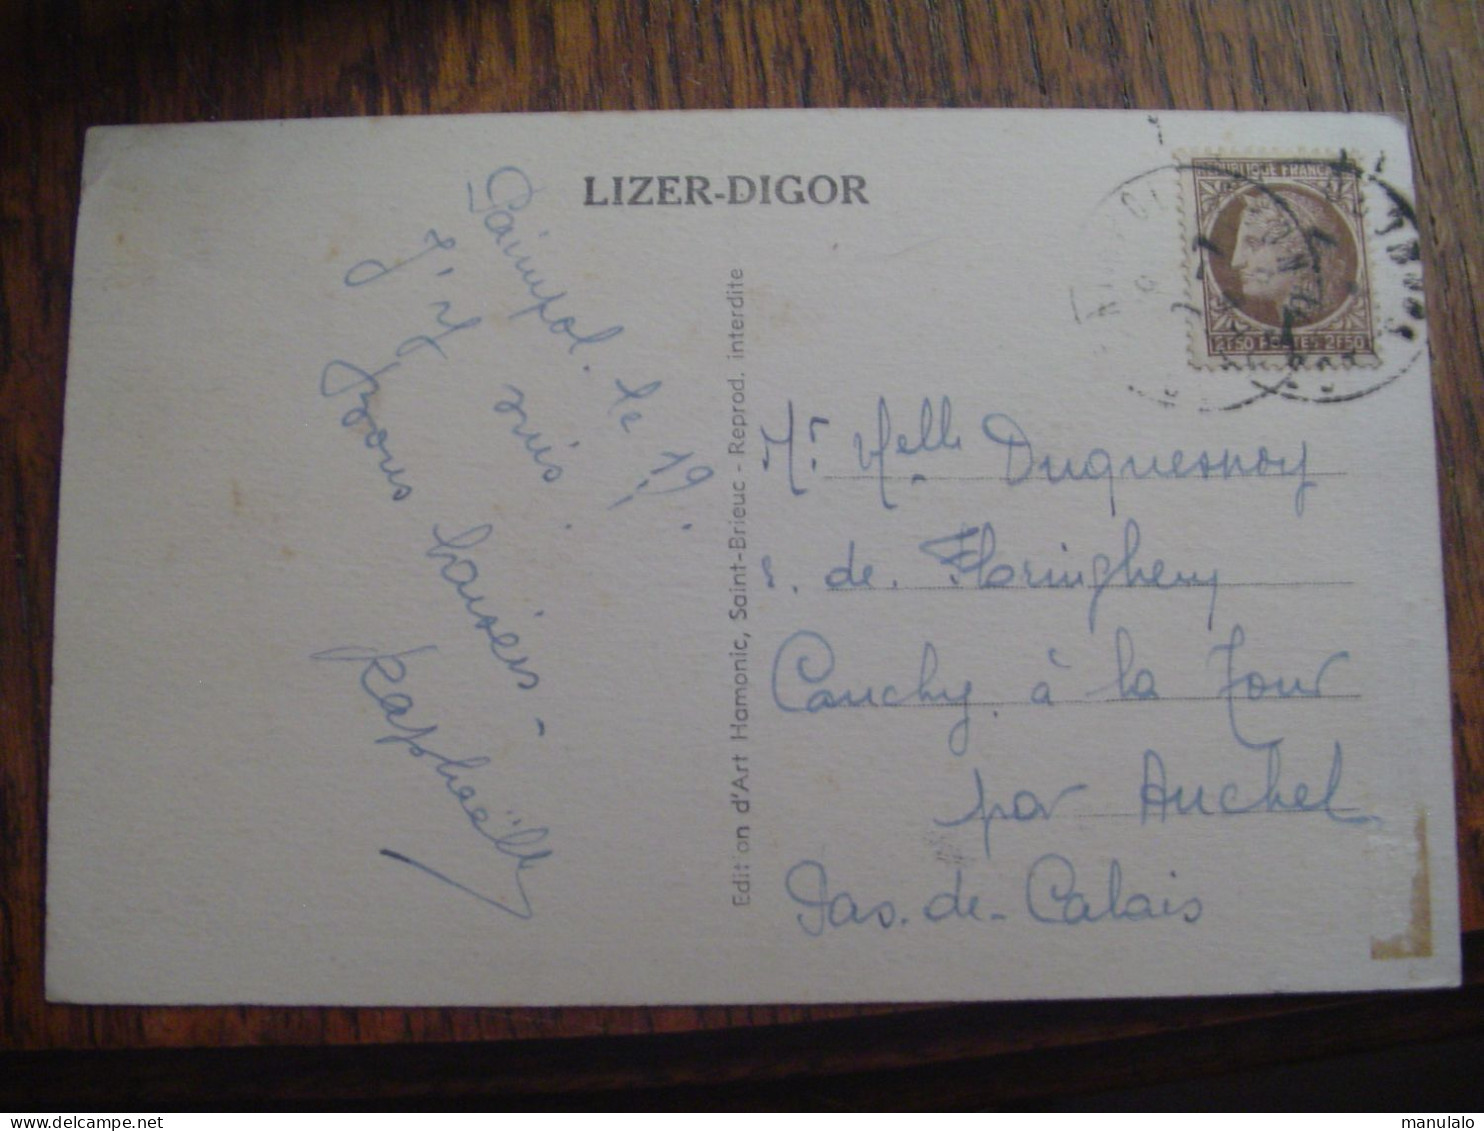 LIZER-DIGOR
Paimpol. le 19.
J'y suis.
Bons baisers -
Raphaëlle
Edition d'Art Hamonic, Saint-Brieuc - Reprod. interdite
REPUBLIQUE FRANC
2F50 POSTES 2F50
Mr Melle Duquesnoy
r. de Floringhem
Cauchy. à la Tour
par Auchel
Pas. de - Calais
www.delcampe.net
manulalo